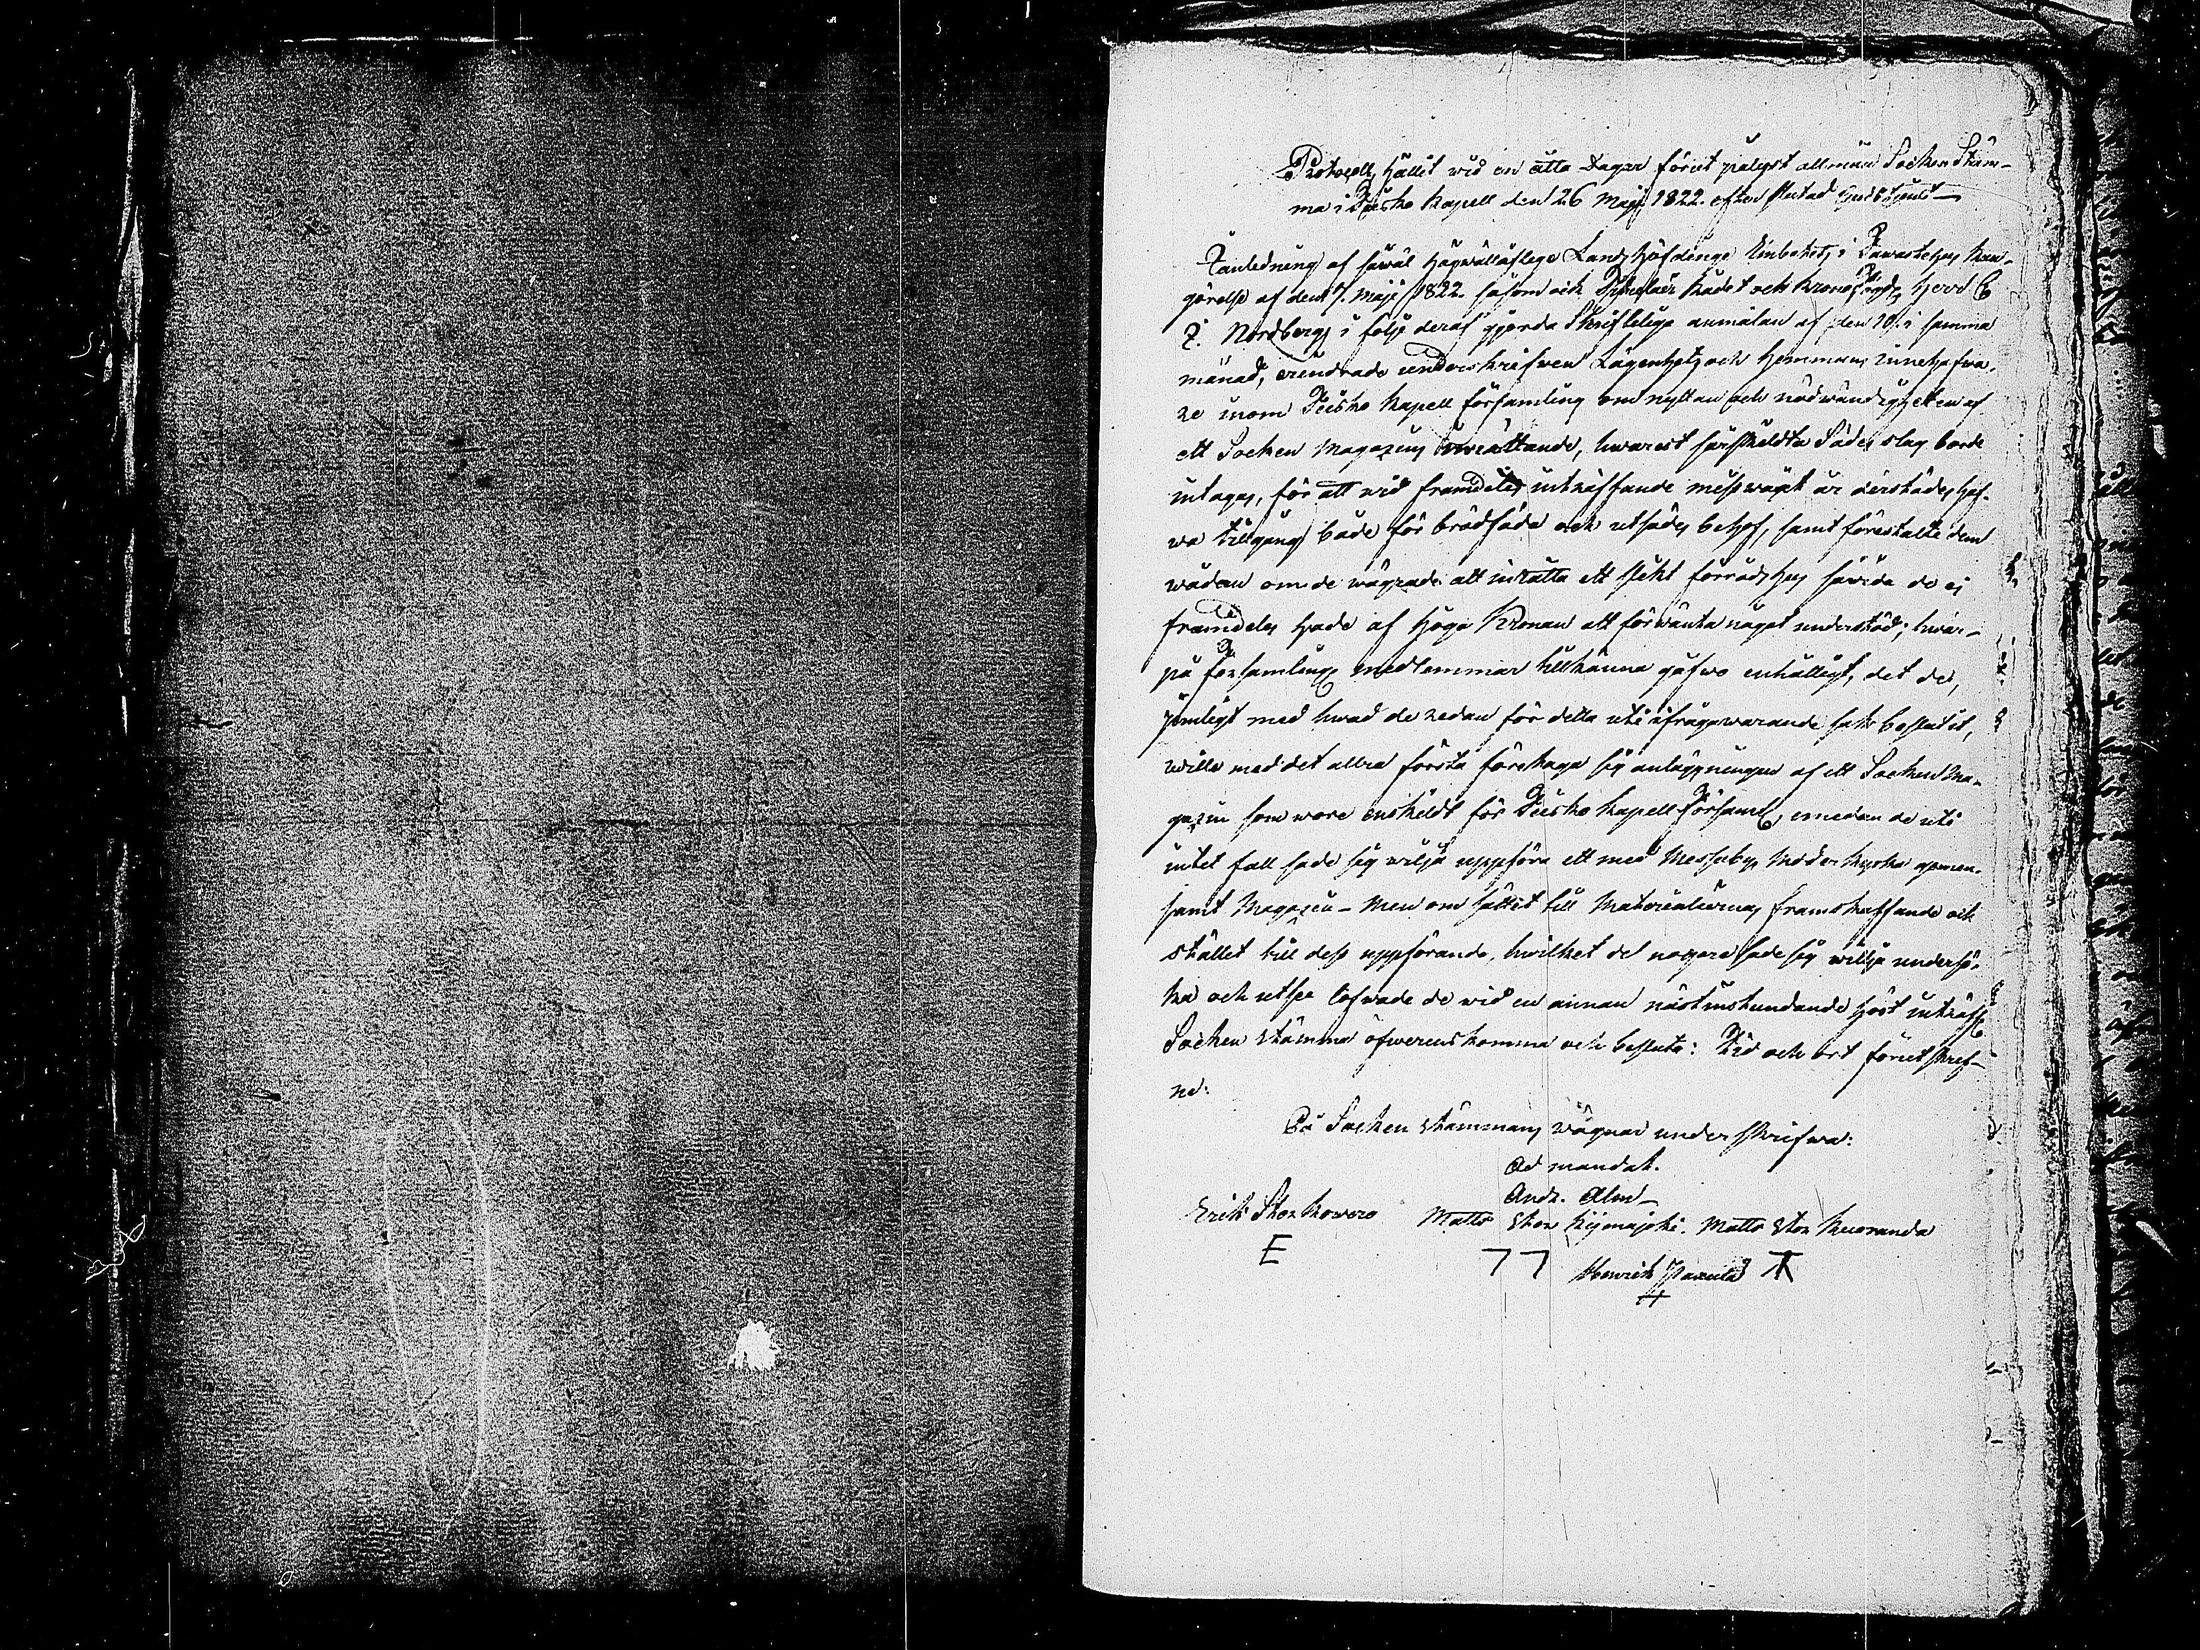 Protocoll, hållit wid en åtta Dagar förut pålyst allmän Socken Stäm-
ma i Teisko Kapell den 26 Maji 1822. efter slutad Gudstjenst —
I anledning af såwäl Högwällofliga Landshöfdinge Embetets i Tawastehus kun-
görelse af den 7. Maji 1822. såsom ock Titulair Rådet och Krono Fogden Herr C
I. Nordbergs i följe deraf gjorda Skriftelige anmälan af den 10. i samma
månad, erindrade underskrifwen Lägenhets och Hemmans innehafwa-
re inom Teisko Kapell församling om nyttan och nödwändigheten af
ett Socken Magazins inrättande, hwarest särskildta Sädes slag borde
intagas, för att wid framdeles inträffande misswäxt år derstädes haf-
wa tillgång både för brödföda och utsädes behof, samt förestälte dem
wådan om de wägrade att inrätta ett slikt förrådshus såwida de ej
framdeles hade af Höga Kronan att förwänta något understöd; hwar-
på Församlings medlemmar tillkänna gåfwo enhälligt, det de,
jemligt med hwad de redan för detta uti ifrågawarande sak beslutit,
wille med det allra första företaga sig anläggningen af ett Socken Ma-
gazin som wore enskildt för Teisko Kapell Församl, emedan de uti
intet fall sade sig wilja uppföra ett med Messuby Moder kyrka gemen-
samt Magazin — Men om sättet till Materialiernas framskaffande och
stället till dess uppförande, hwilket de nogare sade sig willja undersö-
ka och utse lofwade de wid en annan nästinstundande höst inträff
Socken stämma öfwerenskomma och besluta: Tid och ort förutskref-
ne:
På Socken stämmans wägnar underskrifwa:
Ad mandat.
Andr. Alm —
Erik Skor Kowero Matts Skor Kijmajoki. Matts Skor Kuoranda
E 77 Henrich Paavola